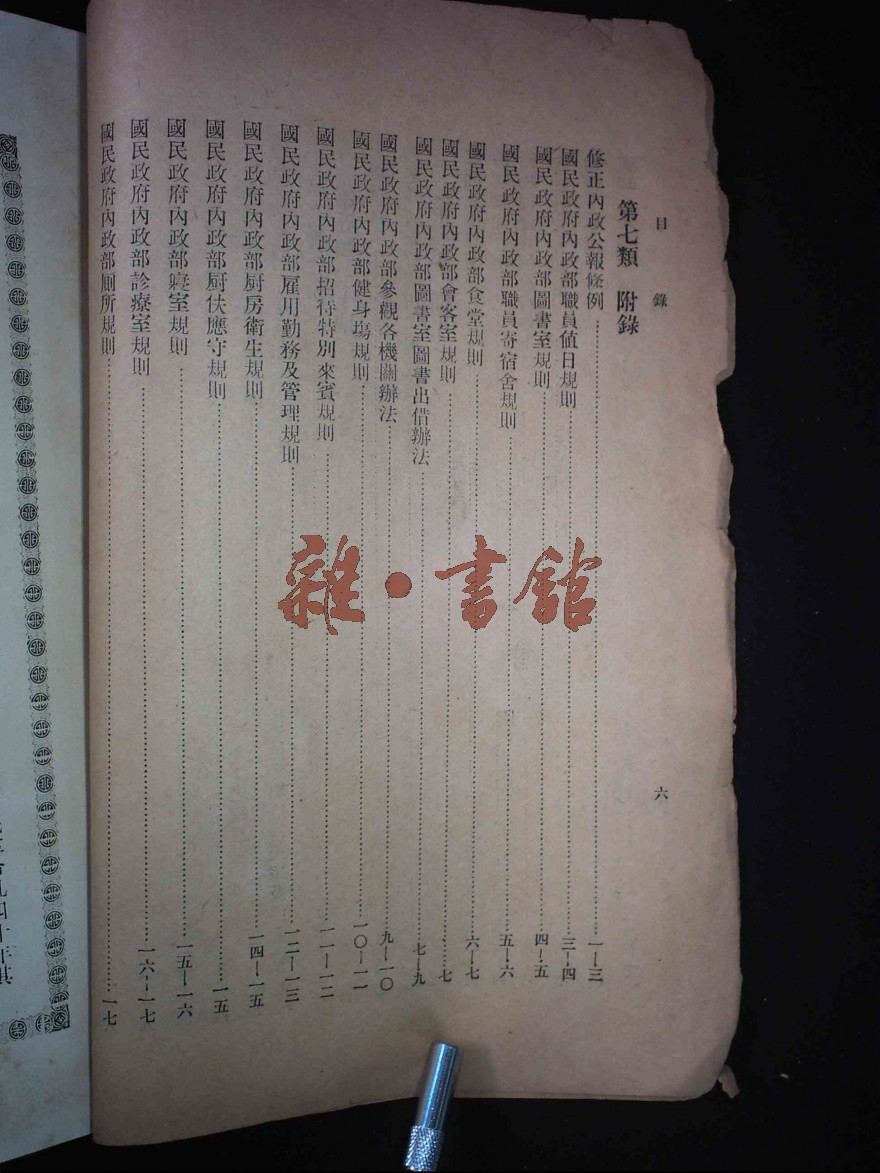 目錄 六
第七類 附錄
修正內政公報條例 一—三
國民政府內政部職員值日規則 三—四
國民政府內政部圖書室規則 四—五
國民政府內政部職員寄宿舍規則 五—六
國民政府內政部食堂規則 六—七
國民政府內政部會客室規則 七
國民政府內政部圖書室圖書出借辦法 七—九
國民政府內政部參觀各機關辦法 九—一〇
國民政府內政部健身場規則 一〇—一一
國民政府內政部招待特別來賓規則 一一—一二
國民政府內政部雇用勤務及管理規則 一二—一三
國民政府內政部厨房衛生規則 一四—一五
國民政府內政部厨伕應守規則 一五
國民政府內政部寢室規則 一五—一六
國民政府內政部診療室規則 一六—一七
國民政府內政部厠所規則 一七
雜·書館